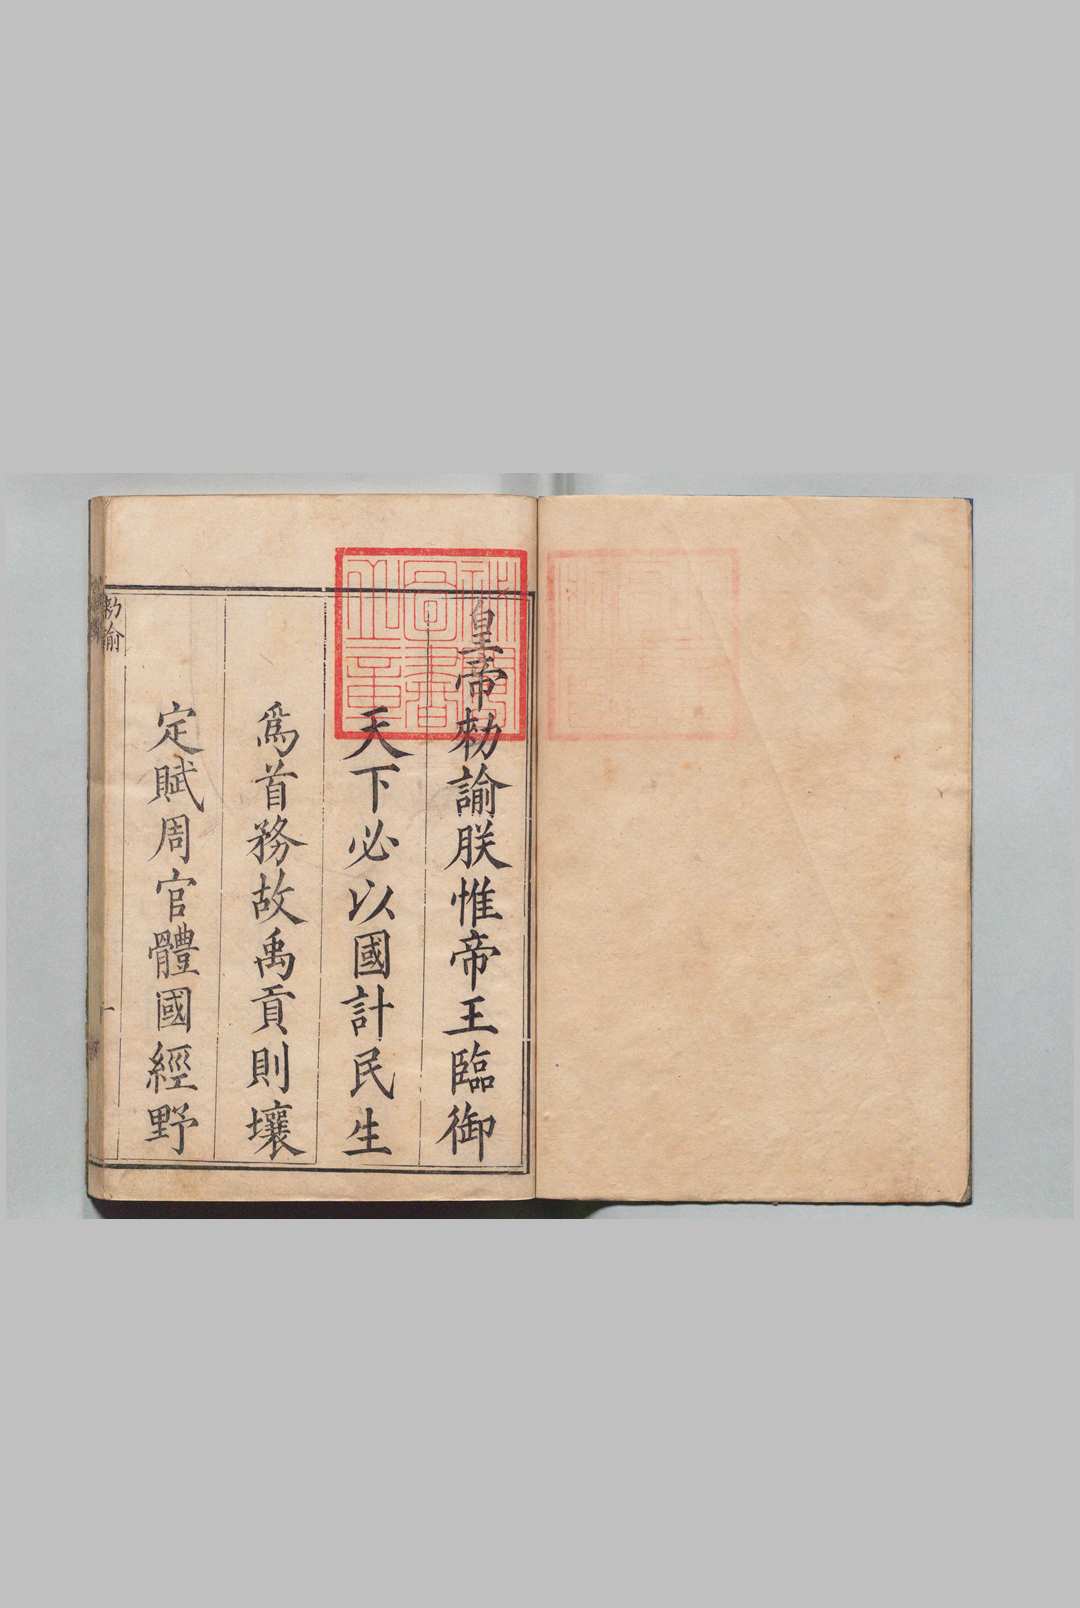 皇帝勑諭朕惟帝王臨御
天下必以國計民生
爲首務故禹貢則壤
定賦周官體國經野
勑諭
一